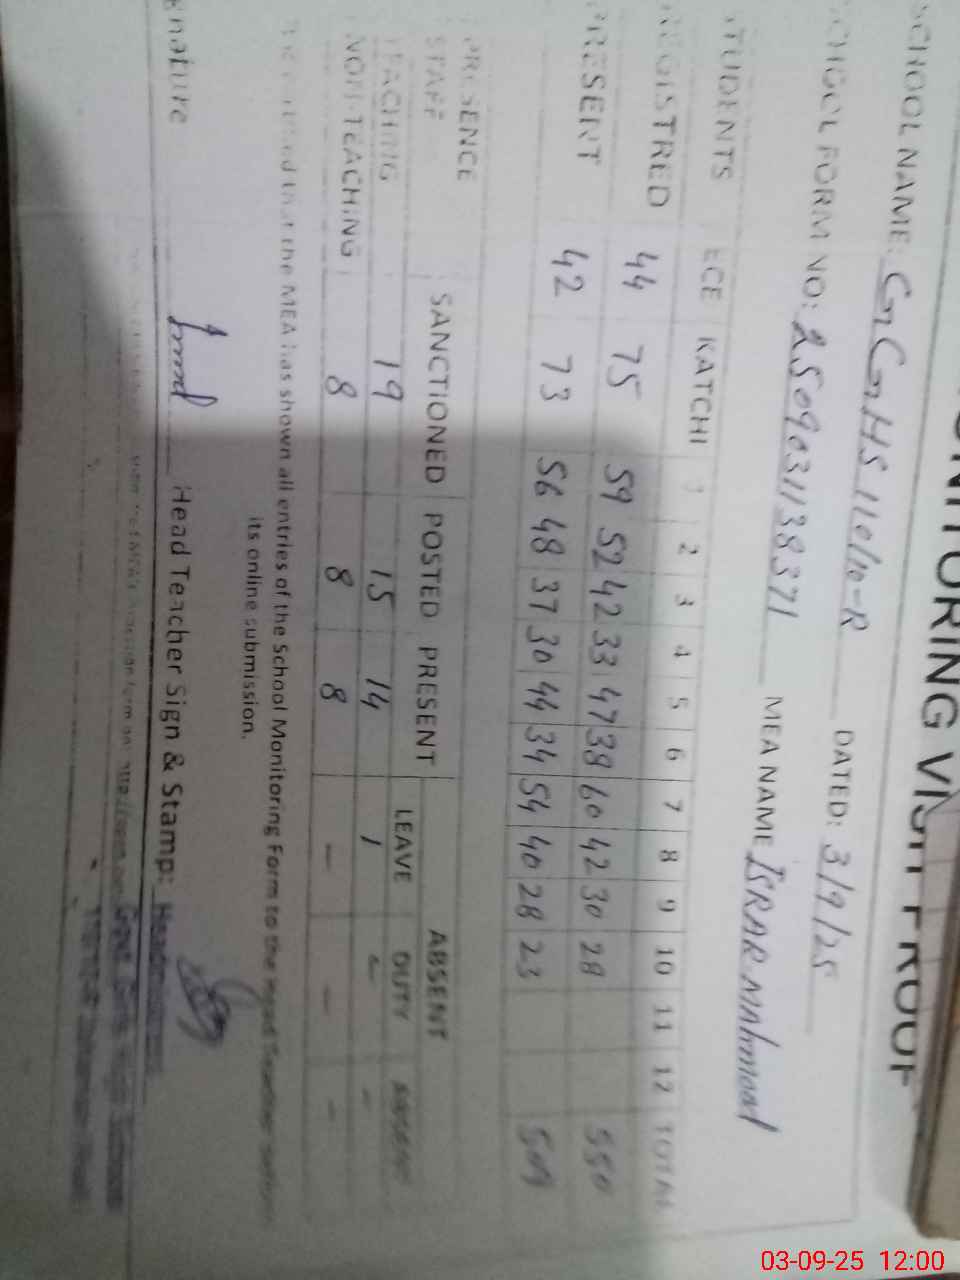 MONITORING VISIT PROOF
SCHOOL NAME: GGHS 110/10-R DATED: 3/9/25
SCHOOL FORM NO: 2509031138371 MEA NAME ISRAR Mahmood
STUDENTS ECE KATCHI 1 2 3 4 5 6 7 8 9 10 11 12 TOTAL
REGISTRED 44 75 59 52 42 33 47 38 60 42 30 28 550
PRESENT 42 73 56 48 37 30 44 34 54 40 28 23 509
PRESENCE SANCTIONED POSTED PRESENT ABSENT
STAFF LEAVE DUTY ABSENT
TEACHING 19 15 14 1 - -
NON-TEACHING 8 8 8 - - -
that the MEA has shown all entries of the School Monitoring Form to the Head Teacher before
its online submission.
gnature Head Teacher Sign & Stamp: Headmistress
Govt. Girls High School
03-09-25 12:00